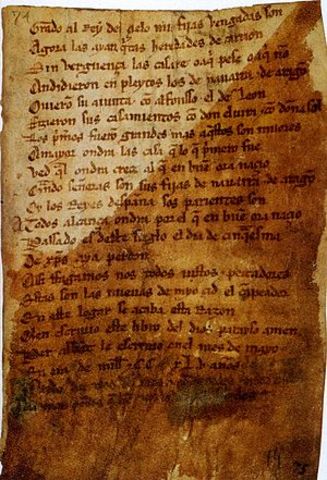 Grado al Rey del çielo mis fijas vengadas son
Agora las ayan qtas heredades de carrion
Sin verguença las casare o aq pese o aq nõ
Andidieron en pleytos los de nauarra & de aragõ
Ouieron su aiunta cõ alfonsso el de leon
Fizieron sus casamientos cõ don eluira & cõ doña sol
Los pmos fuerõ grandes mas aqstos son miiores
A mayor ondra las casa q lo q pmero fue
Ved ql ondra creçe al q en buẽ ora naçio
Qndo señoras son sus fijas de nauarra & de aragõ
Oy los Reyes despaña sos parientes son
A todos alcança ondra por el q en buẽ ora naçio
Passado es deste sieglo el dia de cinqesma
De xp̃s aya perdon
Assi ffagamos nos todos iustos & peccadores
Estas son las nueuas de myo çid el cãpeador
En este logar se acaba esta Razon
Qien escriuio este libro del dios parayso amen
Per abbat le escriuio en el mes de mayo
En era de mill & CC xLv años